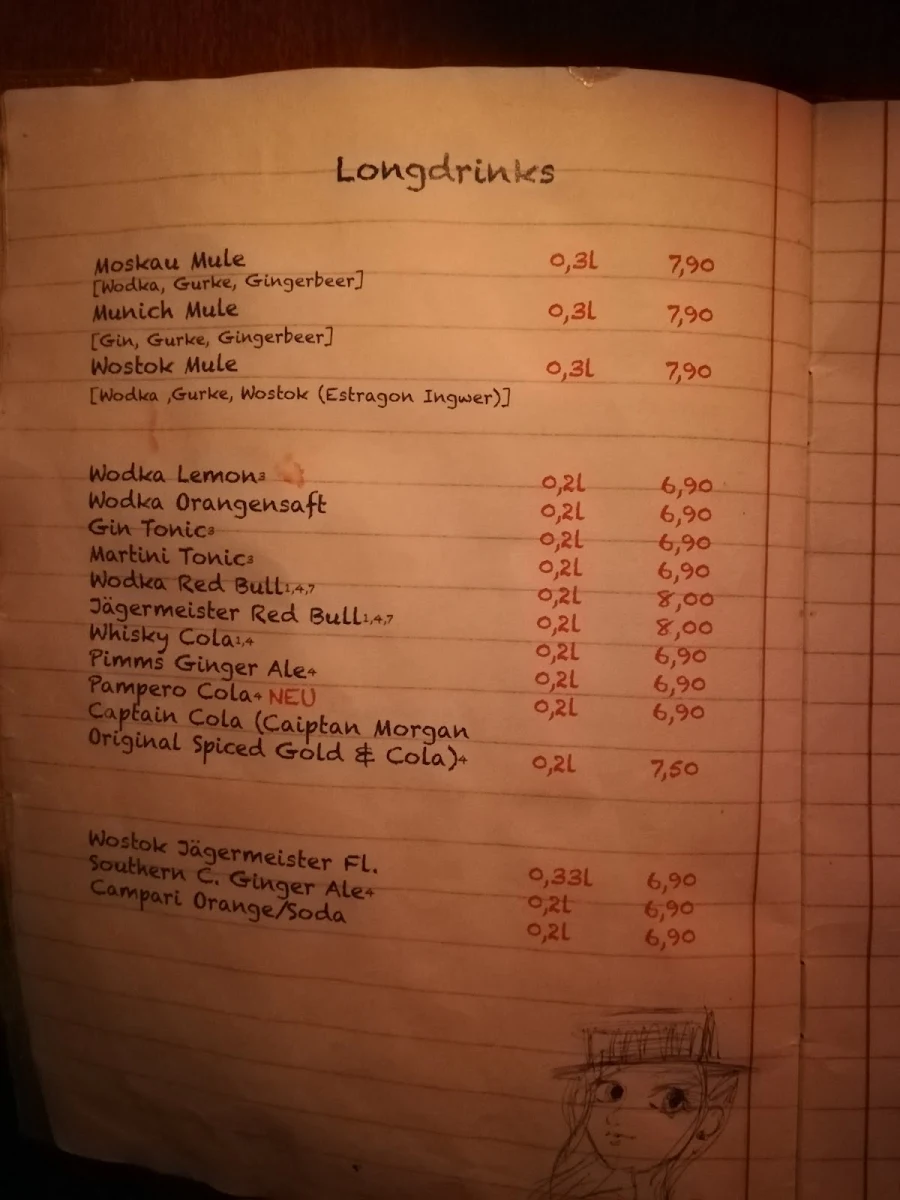 Longdrinks
Moskau Mule 0,3l 7,90
[Wodka, Gurke, Gingerbeer]
Munich Mule 0,3l 7,90
[Gin, Gurke, Gingerbeer]
Wostok Mule 0,3l 7,90
[Wodka ,Gurke, Wostok (Estragon Ingwer)]
Wodka Lemon3 0,2l 6,90
Wodka Orangensaft 0,2l 6,90
Gin Tonic3 0,2l 6,90
Martini Tonic3 0,2l 6,90
Wodka Red Bull1,4,7 0,2l 8,00
Jägermeister Red Bull1,4,7 0,2l 8,00
Whisky Cola1,4 0,2l 6,90
Pimms Ginger Ale4 0,2l 6,90
Pampero Cola4 NEU 0,2l 6,90
Captain Cola (Caiptan Morgan
Original Spiced Gold & Cola)4 0,2l 7,50
Wostok Jägermeister Fl. 0,33l 6,90
Southern C. Ginger Ale4 0,2l 6,90
Campari Orange/Soda 0,2l 6,90